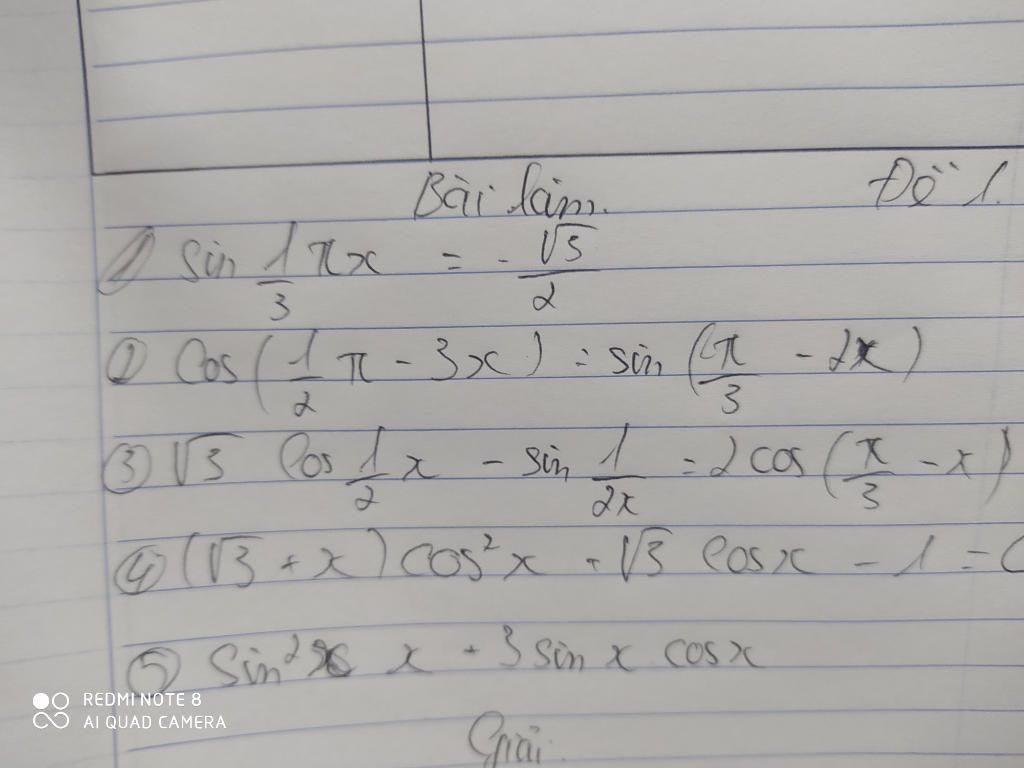 Bài làm. Đề 1.
① sin 1/3 πx = - √3/2
② Cos (1/2 π - 3x) = sin (π/3 - 2x)
③ √3 Cos 1/2 x - sin 1/2x = 2 cos (π/3 - x)
④ (√3 + x) cos²x + √3 cosx - 1 =
⑤ Sin² x + 3 sin x cosx
Giải.
REDMI NOTE 8
AI QUAD CAMERA